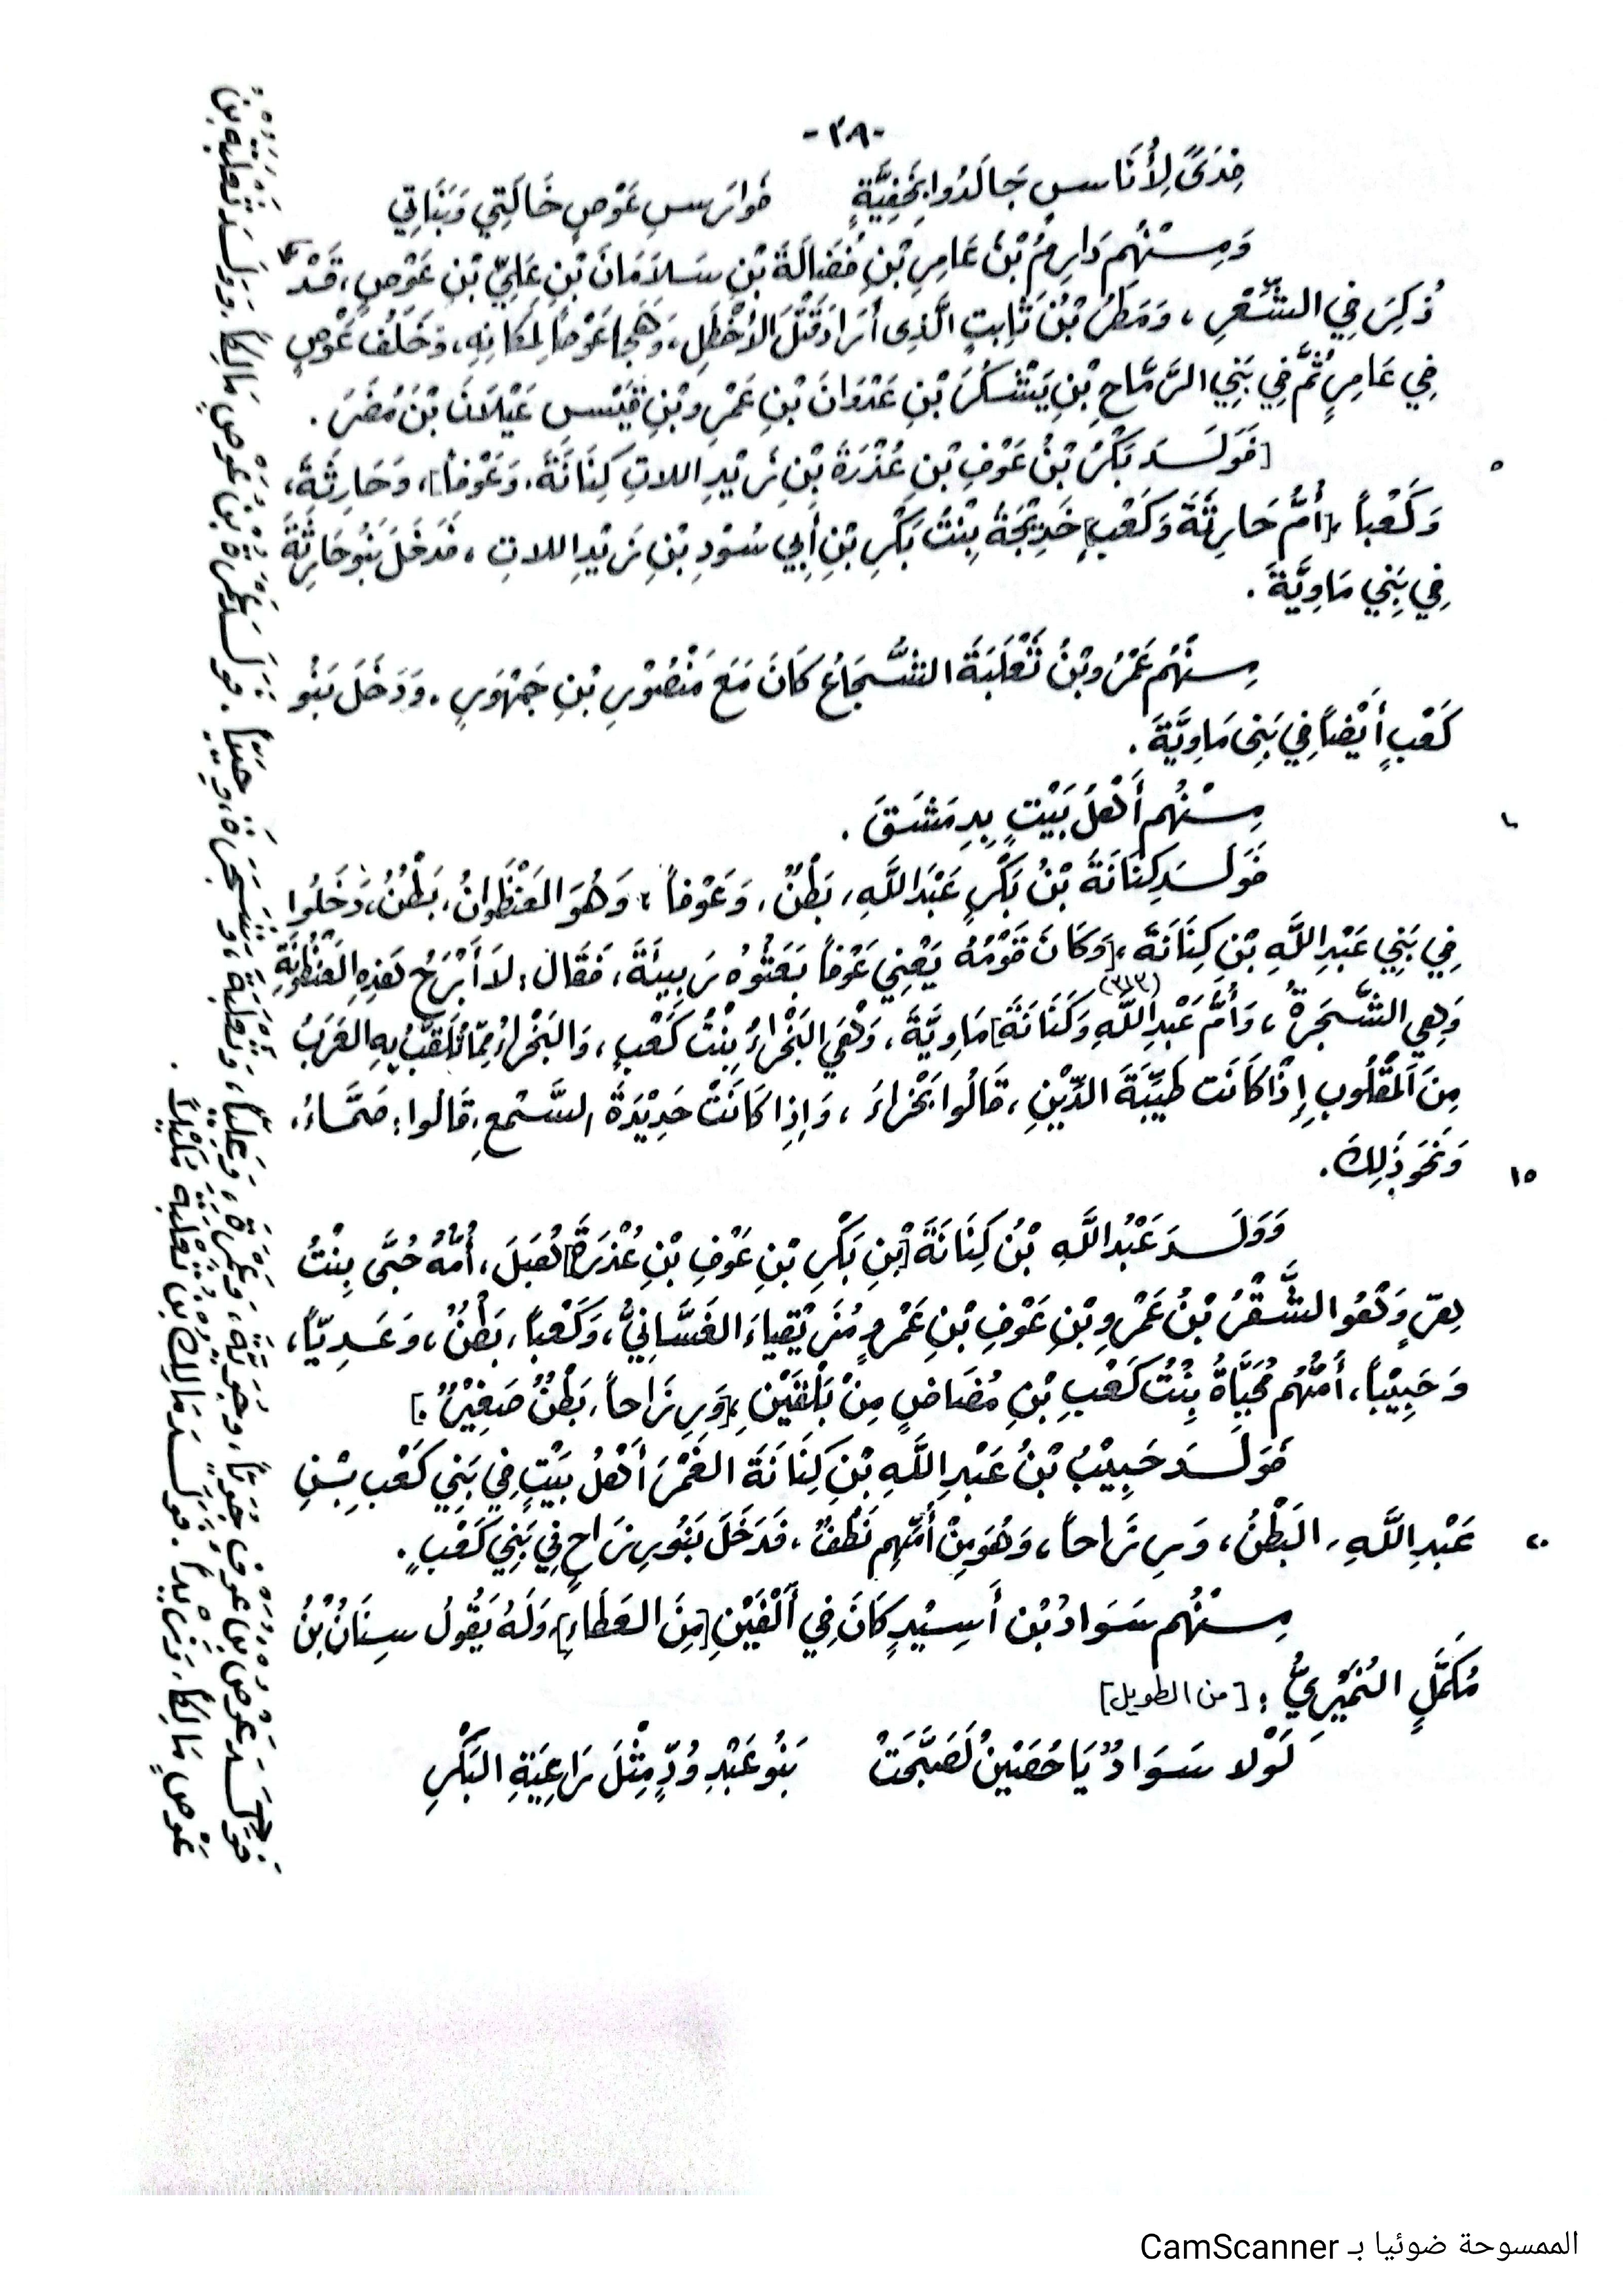 -٣٨-
فِدَىً لِأُنَاسٍ جَالَدُوا بِخَفِيَّةٍ فَوَارِسِ عَوْصٍ خَالَتِي وَبَنَاتِي
وَمِنْهُم دَارِمُ بْنُ عَامِرِ بْنِ فُضَالَةَ بْنِ سَلاَمَانَ بْنِ عَلِيِّ بْنِ عَوْصٍ، قَدْ
ذُكِرَ فِي الشِّعْرِ، وَمَطَرُ بْنُ ثَابِتٍ الَّذِى أَرَادَ قَتْلَ الأَخْطَلِ، وَهَجَا عَوْصاً لِمَكَانِهِ، وَخَلَفَ عَوْصٍ
فِي عَامِرٍ ثُمَّ فِي بَنِي الرَّمَّاحِ بْنِ يَشْكُرَ بْنِ عَدْوَانَ بْنِ عَمْرِو بْنِ قَيْسِ عَيْلاَنَ بْنِ مُضَرَ.
[فَوَلَدَ بَكْرُ بْنُ عَوْفِ بْنِ عُذْرَةَ بْنِ زَيْدِ اللاتِ كِنَانَةَ، وَعَوْفاً]، وَحَارِثَةَ، ٥
وَكَعْباً، [أُمُّ حَارِثَةَ وَكَعْبٍ] خَدِيْجَةُ بِنْتُ بَكْرِ بْنِ أَبِي سُوْدِ بْنِ زَيْدِ اللاتِ، فَدَخَلَ بَنُو حَارِثَةَ
فِي بَنِي مَاوِيَّةَ.
مِنْهُم عَمْرُو بْنُ ثَعْلَبَةَ الشُّجَاعُ كَانَ مَعَ مَنْصُوْرِ بْنِ جَمْهُورٍ. وَدَخَلَ بَنُو
كَعْبٍ أَيْضاً فِي بَنِى مَاوِيَّةَ.
مِنْهُم أَهْلُ بَيْتٍ بِدِمَشْقَ.
فَوَلَدَ كِنَانَةُ بْنُ بَكْرٍ عَبْدَ اللَّهِ، بَطْنٌ، وَعَوْفاً، وَهُوَ العُنْظُوَانُ، بَطْنٌ، دَخَلُوا
فِي بَنِي عَبْدِ اللَّهِ بْنِ كِنَانَةَ، [وَكَانَ قَوْمُهُ يَعْنِي عَوْفاً بَعَثُوهُ رَبِيئَةً، فَقَالَ: لاَ أَبْرَحُ هَذِهِ العُنْظُوَانَةِ
وَهِي الشَّجَرَةُ، وَأُمُّ عَبْدِ اللَّهِ وَكَنَانَةَ] (٣١٣) مَاوِيَّةَ، وَهْيَ البَخْرَاءُ بِنْتُ كَعْبٍ، وَالبَخْرَاءُ مِمَّا تُلَقِّبُ بِهِ العَرَبُ
مِنَ المَقْلُوبِ إِذَا كَانَت طَيِّبَةَ الدِّيْنِ، قَالُوا بَخْرَاءُ، وَإِذَا كَانَتْ حَدِيْدَةَ السَّمْعِ، قَالُوا: صَمَّاءُ،
وَنَحَوَ ذَلِكَ. ١٥
وَوَلَدَ عَبْدُ اللَّهِ بْنُ كِنَانَةَ [بْنِ بَكْرِ بْنِ عَوْفِ بْنِ عُذْرَةَ] هُبَلَ، أُمُّهُ حُبَّى بِنْتُ
هِرٍّ وَهُو الشَّقْرُ بْنُ عَمْرِو بْنِ عَوْفِ بْنِ عَمْرٍو مُزَيْقِيَاءَ الغَسَّانِيُّ، وَكَعْباً، بَطْنٌ، وَعَدِيّاً،
وَحَبِيْباً، أُمُّهُم مُحَيَّاةُ بِنْتُ كَعْبِ بْنِ مُضَاضٍ مِنْ بَلْقَيْنِ، [وَرِزَاحاً، بَطْنٌ صَغِيْرٌ.]
فَوَلَدَ حَبِيْبُ بْنُ عَبْدِ اللَّهِ بْنِ كِنَانَةَ الغَمْرَ أَهْلُ بَيْتٍ فِي بَنِي كَعْبِ بْنِ
عَبْدِ اللَّهِ، البَطْنُ، وَرِزَاحاً، وَهُوَ مِنْ أُمِّهِم نَطْفٌ، فَدَخَلَ بَنُو رِزَاحٍ فِي بَنِي كَعْبٍ. ٢٠
مِنْهُم سَوَادُ بْنُ أَسِيْدٍ كَانَ فِي أَلْفَيْنِ [مِنَ العَطَاءِ] وَلَهُ يَقُولُ سِنَانُ بْنُ
مُكَمَّلٍ النُمَيْرِيُّ: [من الطويل]
لَوْلا سَوَادٌ يَا حُصَيْنُ لَصَبَّحَتْ بَنُو عَبْدِ وُدٍّ مِثْلَ رَاغِيَةِ البَكْرِ
فَوَلَدَ عَوْصُ بن عَوفٍ
عَوْصٍ مَالِكاً، وَزَيْداً. فَوَلَدَ مَالِكُ بن ثَعلَبَةَ
الممسوحة ضوئيا بـ CamScanner